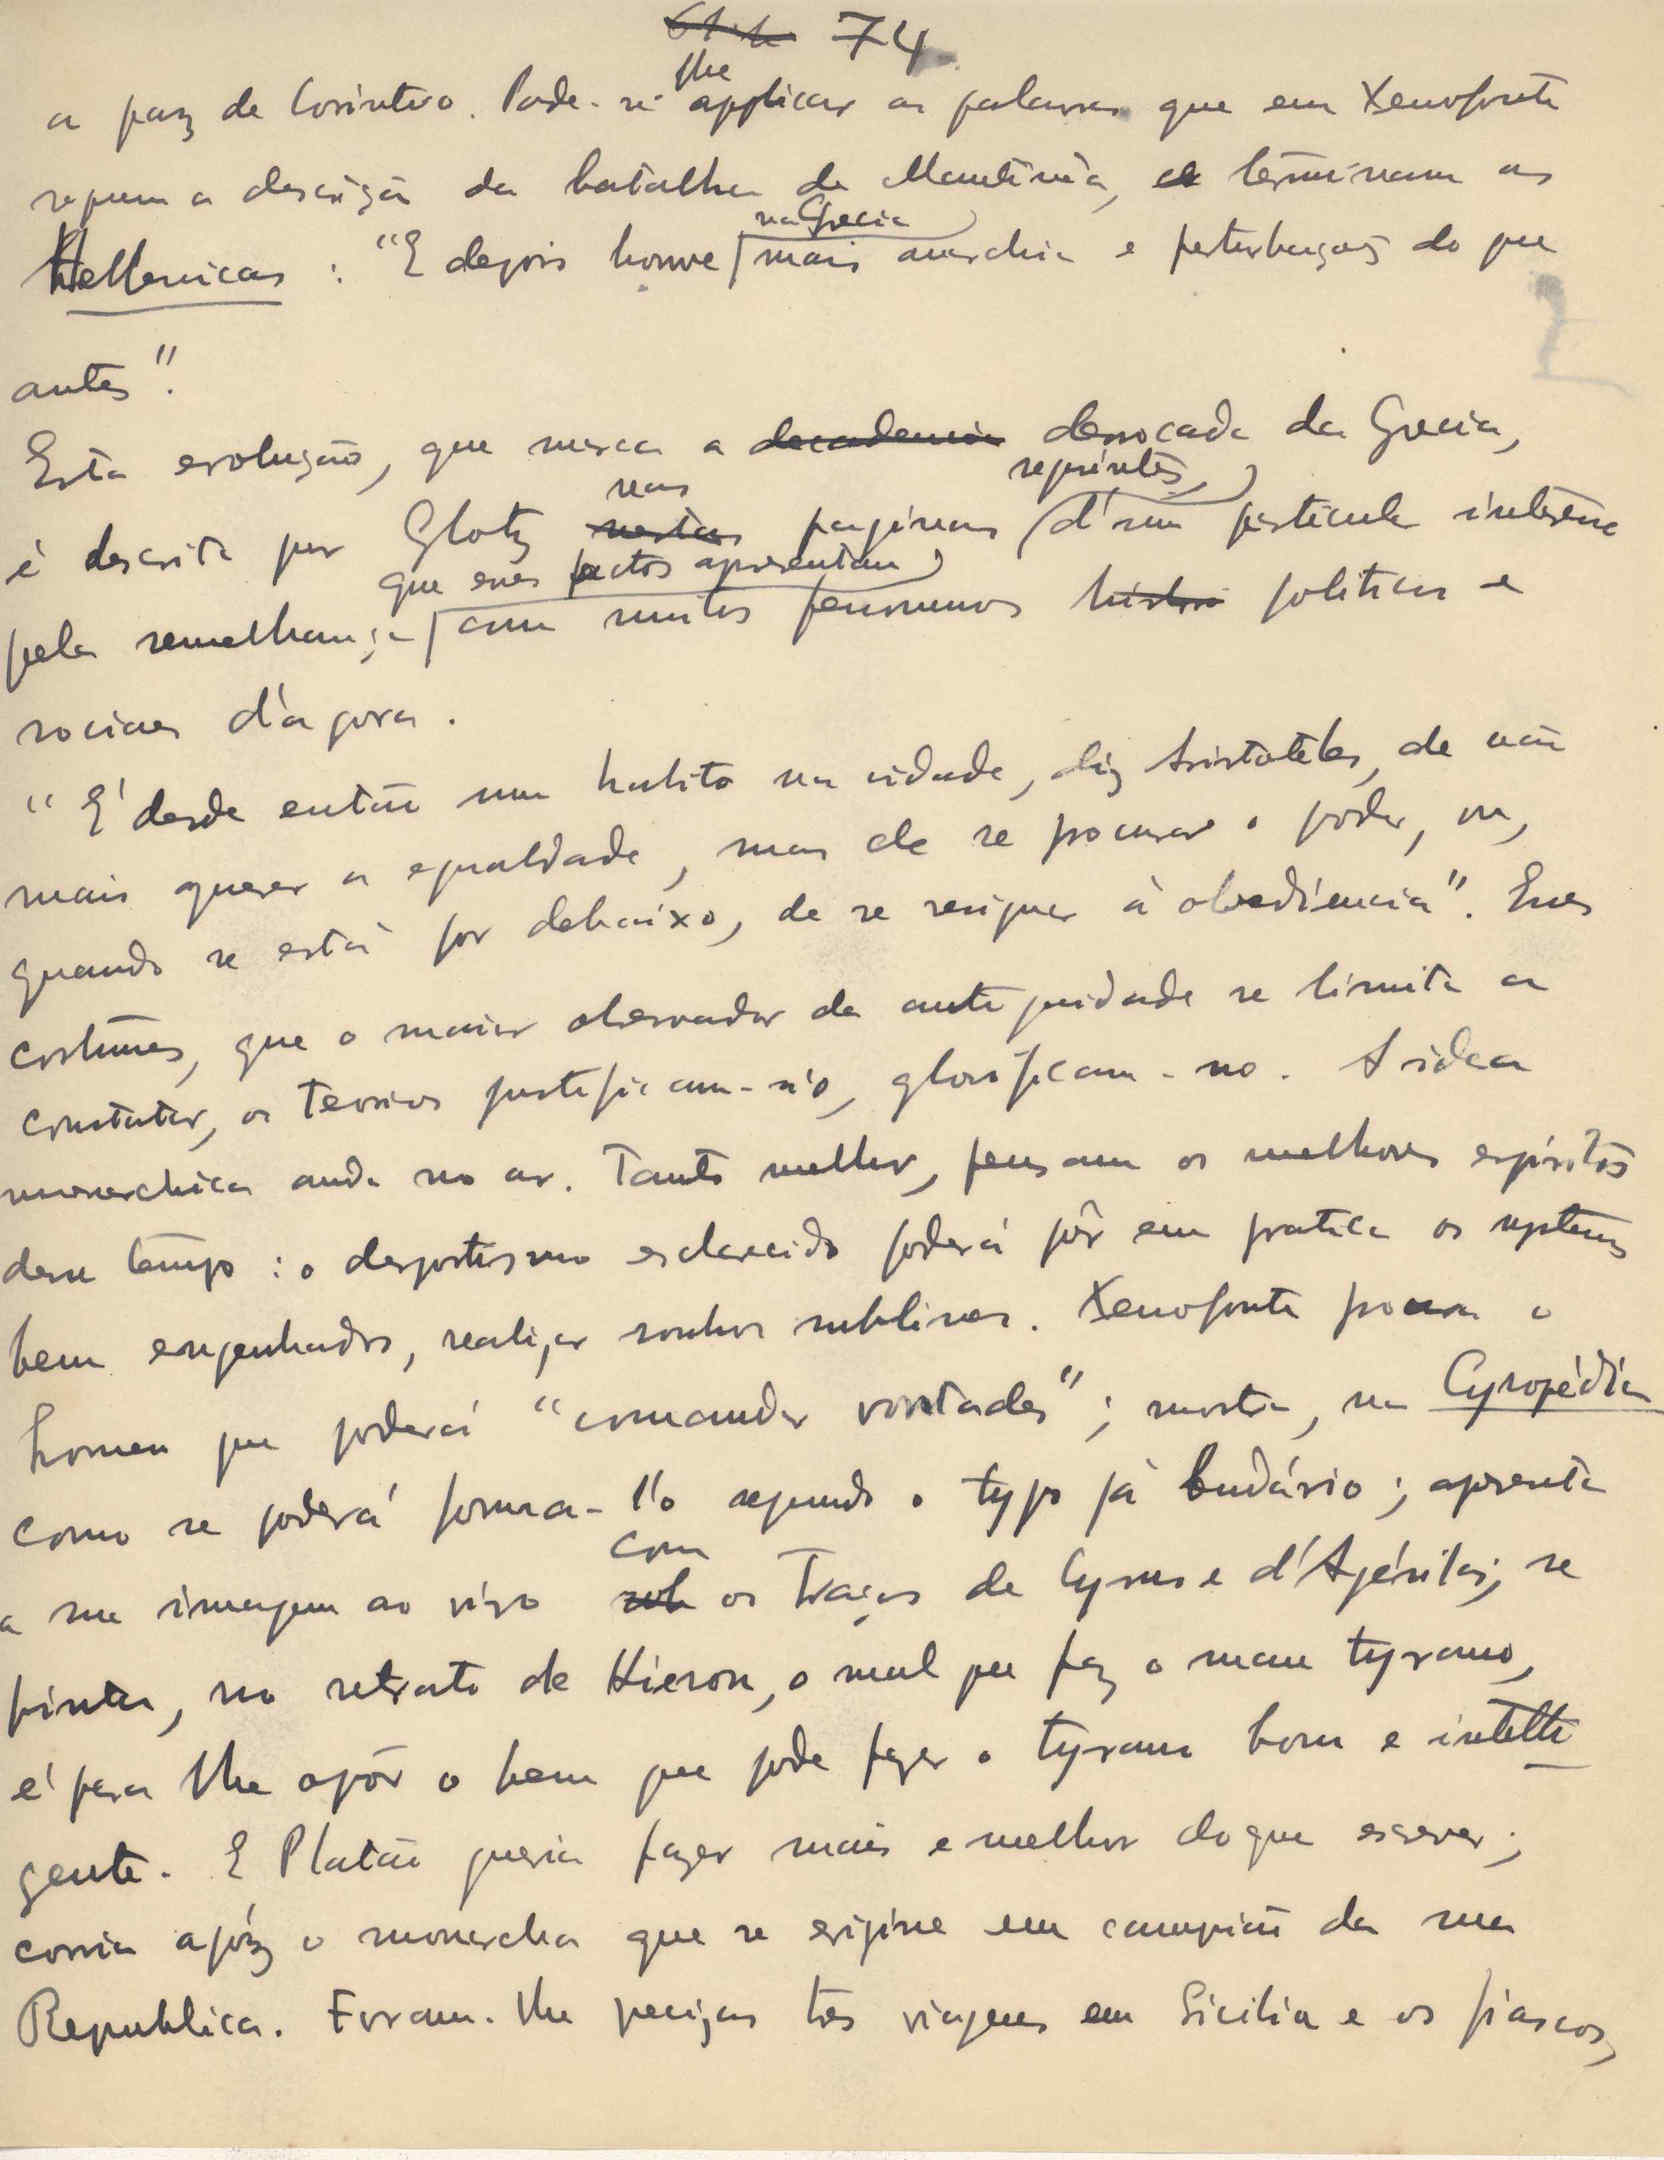 74
a paz de Corintho. Pode-se lhe applicar as palavras que em Xenofonte
seguem a descrição da batalha de Mantinéa, e terminam as
Hellenicas : "E depois houve na Grecia mais anarchia e perturbação do que
antes".
Esta evolução, que marca a decadencia derrocada da Grecia,
é descrita por Glotz nas nestas paginas seguintes, d'um particular interesse
pela semelhança que esses factos apresentam com muitos fenomenos politicos e
sociaes d'agora.
"É desde então um habito na cidade, diz Aristoteles, de não
mais querer a egualdade, mas de se procurar o poder, ou,
quando se está por debaixo, de se resignar á obediencia". Esses
costumes, que o maior observador da antiguidade se limita a
constatar, os teoricos justificam-n'o, glorificam-no. A idea
monarchica anda no ar. Tanto melhor, pensam os melhores espiritos
desse tempo : o despotismo esclarecido poderá pôr em pratica os systemas
bem engenhados, realizar sonhos sublimes. Xenofonte procura o
homem que poderá "comandar vontades"; mostra, na Cyropédia
como se poderá forma-l'o segundo o typo já ; apresenta
a sua imagem ao vivo com sob os traços de Cyrus e d'Agésilas; se
pinta, no retrato de Hieron, o mal que faz o mau tyrano,
é para lhe opôr o bem que pode fazer o tyrano bom e intelli
gente. E Platão queria fazer mais e melhor do que escrever;
corria apóz o monarcha que se erigisse em campião da sua
Republica. Foram-lhe precizas tres viagens em Sicilia e os fiascos,